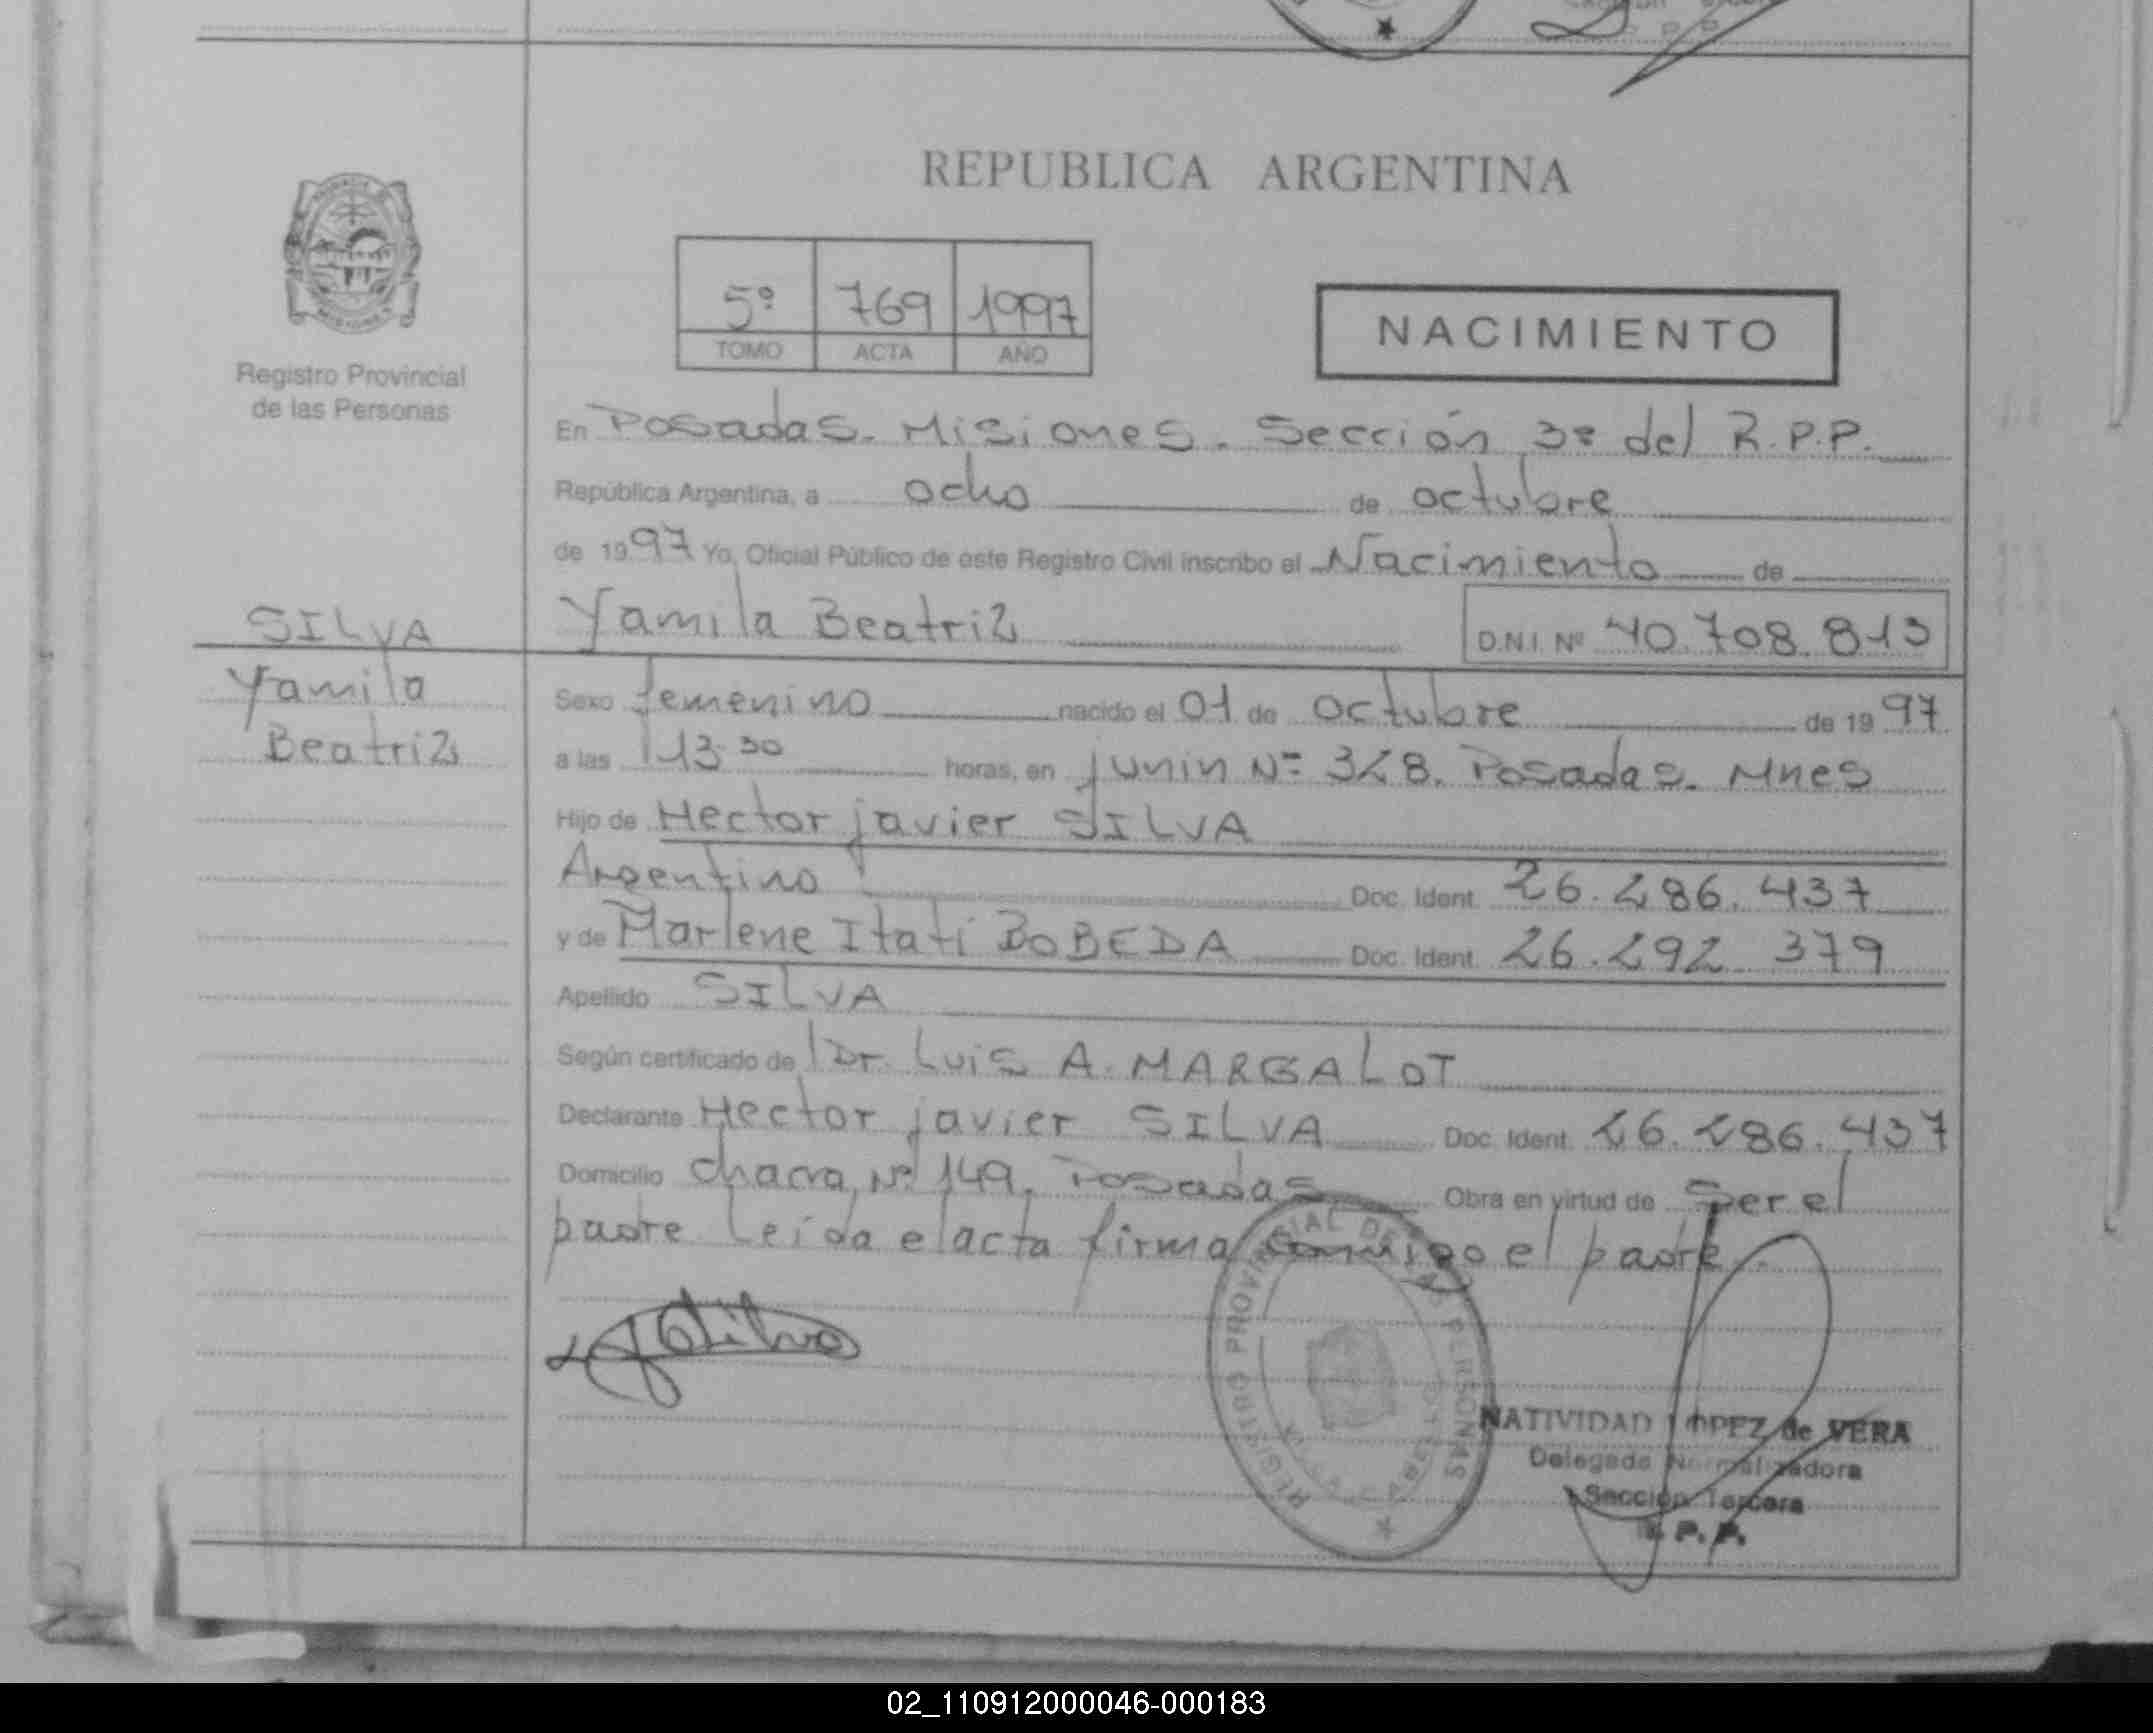 REPUBLICA ARGENTINA
5º 769 1997
TOMO ACTA AÑO
NACIMIENTO
Registro Provincial
de las Personas
En Posadas. Misiones. Sección 3ª del R.P.P.
República Argentina, a ocho de octubre
de 1997 Yo, Oficial Público de este Registro Civil inscribo el Nacimiento de
Yamila Beatriz D.N.I. Nº 40.708.813
SILVA
Yamila
Beatriz
Sexo femenino nacido el 01 de octubre de 1997
a las 13:30 horas, en junin Nº 328. Posadas. Mnes
Hijo de Hector javier SILVA
Argentino Doc. Ident. 26.286.437
y de Marlene Itati BOBEDA Doc. Ident. 26.292.379
Apellido SILVA
Según certificado de Dr. Luis A. MARGALOT
Declarante Hector javier SILVA Doc. Ident. 26.286.437
Domicilio chacra Nº 149. Posadas Obra en virtud de ser el
padre Leida el acta firma conmigo el padre.
Silva
REGISTRO PROVINCIAL DE LAS PERSONAS
NATIVIDAD LOPEZ de VERA
Delegada Normalizadora
Sección Tercera
R. P. P.
02_110912000046-000183